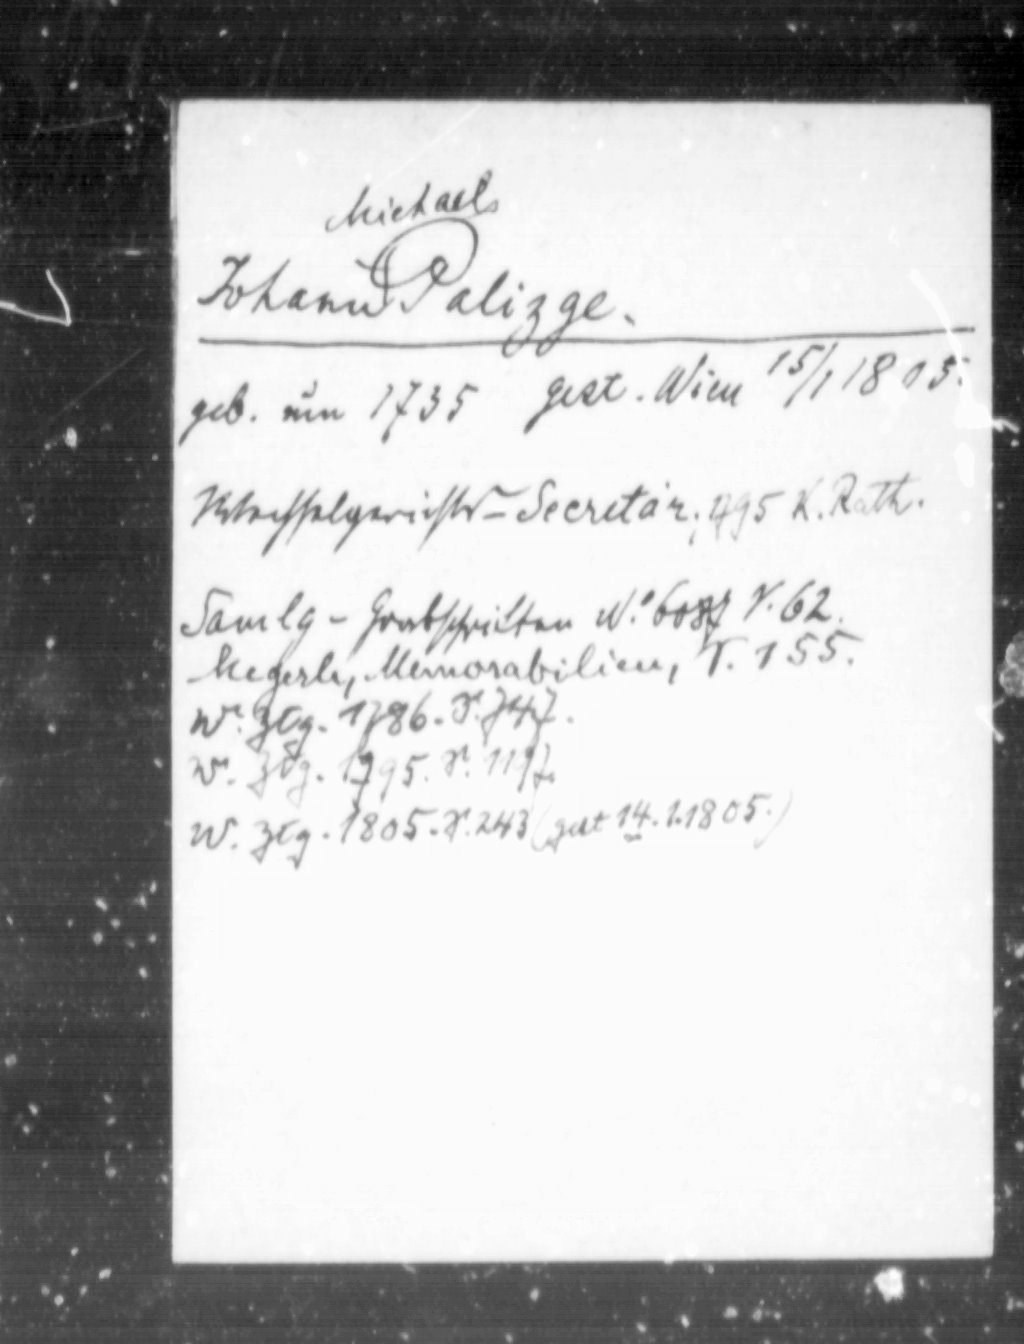 Michael
Johann Palizge.
geb. um 1735 gest. Wien 15/1 1805.
Wechselgerichts-Secretär, 1795 K. Rath.
Samlg - Grabschriften No. S. 62.
Megerle, Memorabilien, S. 155.
W. Ztg. 1786. S. 747.
W. Ztg. 1795. S. 1197.
W. Ztg. 1805. S. 243 (gest 14.1.1805.)